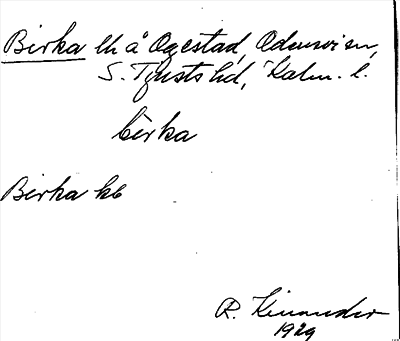 Birka lh å Ogestad, Odensvi sn,
S. Tjusts hd, Kalm. l.
birka
Birka kb
R. Kinander
1929